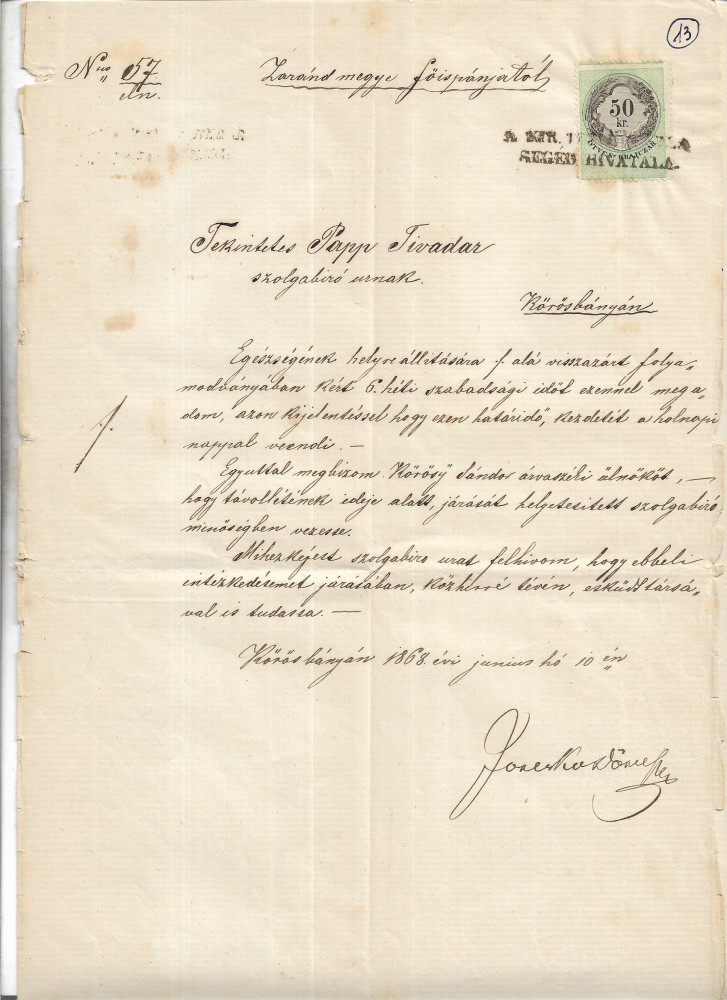 13
Nro 57
eln.
Zaránd megye főispánjától
50
kr.
ÖTVEN KRAJCZÁR
A KIR.
SEGÉD HIVATALA.
Tekintetes Papp Tivadar
szolgabiró urnak.
Körösbányán
Egészségének helyre állitására /. alá visszazárt folya„
modványában kért 6. héti szabadsági időt ezennel meg a„
dom, azon kijelentéssel hogy ezen határidő, kezdetét a holnapi
nappal veendi. —
Egyuttal megbizom Körösÿ Sándor árvaszéki ülnököt, —
hogy távollétének ideje alatt, járását helyetesitett szolgabiró
minőségben vezesse.
Mihezképest szolgabiro urat felhivom, hogy ebbeli
intézkedésemet járásában, közhirré tévén, esküdttársá„
val is tudassa. —
/.
Körösbányán 1868. évi junius hó 10 én